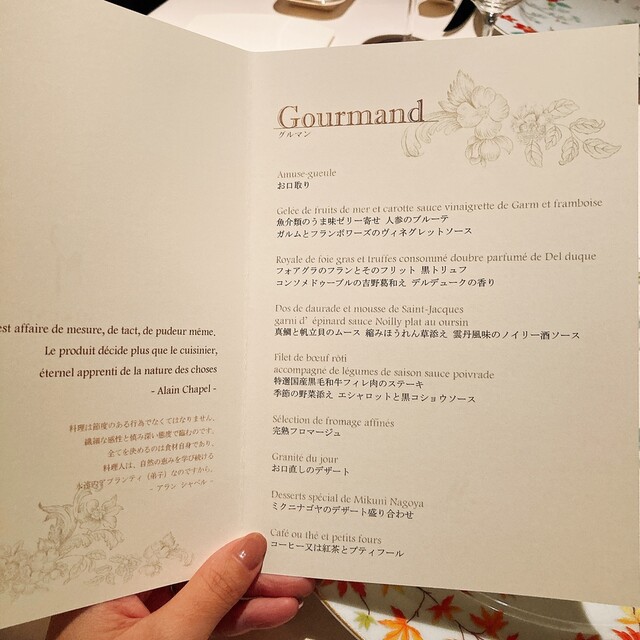 est affaire de mesure, de tact, de pudeur même.
Le produit décide plus que le cuisinier,
éternel apprenti de la nature des choses
- Alain Chapel -
料理は節度のある行為でなくてはなりません。
繊細な感性と慎み深い態度で臨むのです。
全てを決めるのは食材自身であり、
料理人は、自然の恵みを学び続ける
永遠のアプランティ（弟子）なのですから。
- アラン シャペル -
Gourmand
グルマン
Amuse-gueule
お口取り
Gelée de fruits de mer et carotte sauce vinaigrette de Garm et framboise
魚介類のうま味ゼリー寄せ 人参のブルーテ
ガルムとフランボワーズのヴィネグレットソース
Royale de foie gras et truffes consommé doubre parfumé de Del duque
フォアグラのフランとそのフリット 黒トリュフ
コンソメドゥーブルの吉野葛和え デルデュークの香り
Dos de daurade et mousse de Saint-Jacques
garni d' épinard sauce Noilly plat au oursin
真鯛と帆立貝のムース 縮みほうれん草添え 雲丹風味のノイリー酒ソース
Filet de bœuf rôti
accompagné de légumes de saison sauce poivrade
特選国産黒毛和牛フィレ肉のステーキ
季節の野菜添え エシャロットと黒コショウソース
Sélection de fromage affinés
完熟フロマージュ
Granité du jour
お口直しのデザート
Desserts spécial de Mikuni Nagoya
ミクニナゴヤのデザート盛り合わせ
Café ou thé et petits fours
コーヒー又は紅茶とプティフール